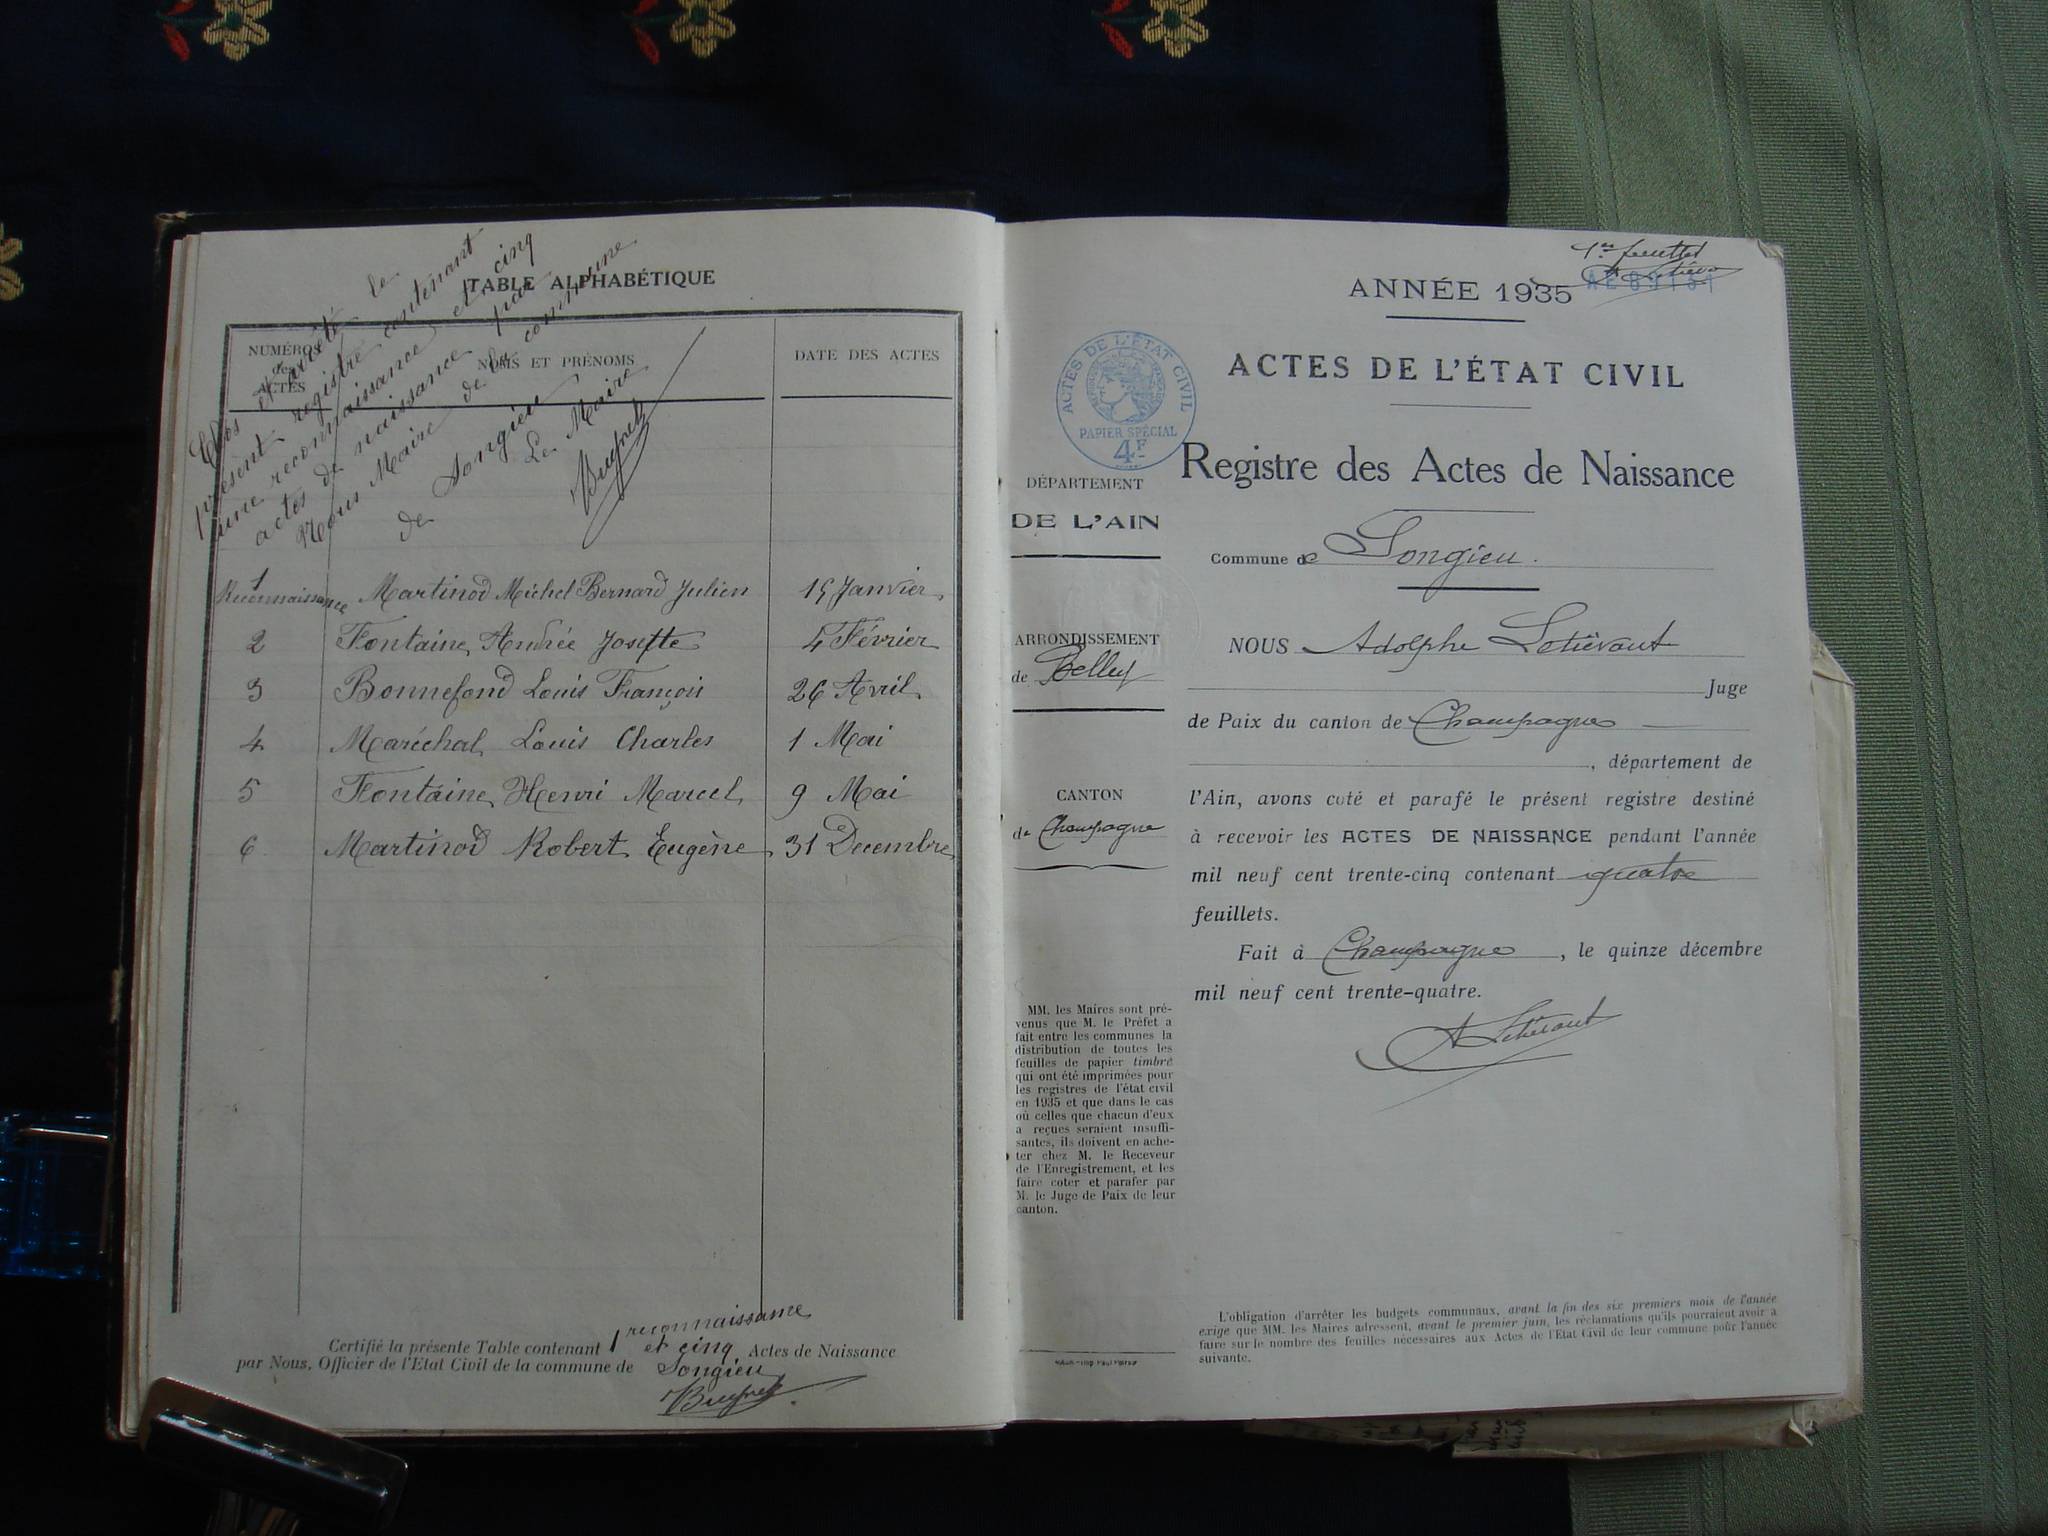 TABLE ALPHABÉTIQUE
Clos et arrêté le
présent registre contenant
une reconnaissance et cinq
actes de naissance par
Nous Maire de la commune
de Songieu
Le Maire
NUMÉROS
des
ACTES
NOMS ET PRÉNOMS
DATE DES ACTES
1
Reconnaissance Martinod Michel Bernard Julien 15 Janvier
2 Fontaine Andrée Josette 4 Février
3 Bonnefond Louis François 26 Avril
4 Maréchal Louis Charles 1 Mai
5 Fontaine Henri Marcel 9 Mai
6 Martinod Robert Eugène 31 Décembre
Certifié la présente Table contenant 1 reconnaissance et cinq Actes de Naissance
par Nous, Officier de l'Etat Civil de la commune de Songieu
1er feuillet
ANNÉE 1935
ACTES DE L'ÉTAT CIVIL
ACTES DE L'ÉTAT CIVIL
PAPIER SPÉCIAL
4F
Registre des Actes de Naissance
DÉPARTEMENT
DE L'AIN
Commune de Songieu.
ARRONDISSEMENT
de Belley
CANTON
de Champagne
NOUS Adolphe Letiévant
Juge
de Paix du canton de Champagne
, département de
l'Ain, avons coté et parafé le présent registre destiné
à recevoir les ACTES DE NAISSANCE pendant l'année
mil neuf cent trente-cinq contenant quatre
feuillets.
Fait à Champagne, le quinze décembre
mil neuf cent trente-quatre.
A Letiévant
MM. les Maires sont pré-
venus que M. le Préfet a
fait entre les communes la
distribution de toutes les
feuilles de papier timbré
qui ont été imprimées pour
les registres de l'état civil
en 1935 et que dans le cas
où celles que chacun d'eux
a reçues seraient insuffi-
santes, ils doivent en ache-
ter chez M. le Receveur
de l'Enregistrement, et les
faire coter et parafer par
M. le Juge de Paix de leur
canton.
L'obligation d'arrêter les budgets communaux, avant la fin des six premiers mois de l'année
exige que MM. les Maires adressent, avant le premier juin, les réclamations qu'ils pourraient avoir à
faire sur le nombre des feuilles nécessaires aux Actes de l'Etat Civil de leur commune pour l'année
suivante.